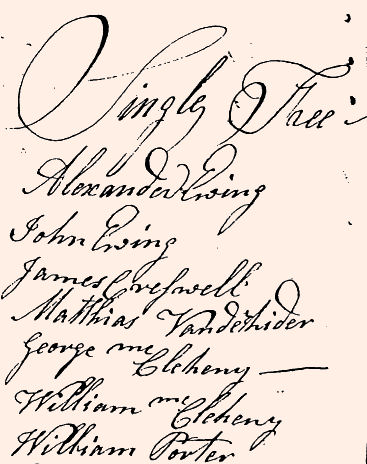 Singley Free
Alexander Ewing
John Ewing
James Creswell
Matthias Vandehider
George mc
Cleheny —
William mc Cleheny
William Porter